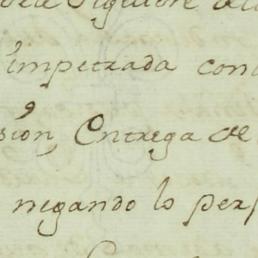 impetrada con
sion, Entrega de
negando lo per